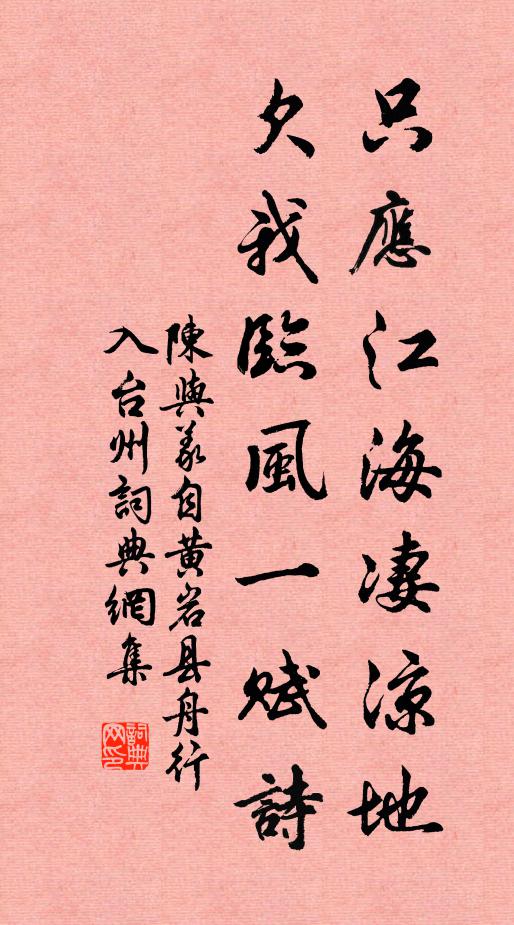 只應江海凄涼地
欠我臨風一賦詩
陳與義自黄岩县舟行
入台州詞典網集
詞典
网印